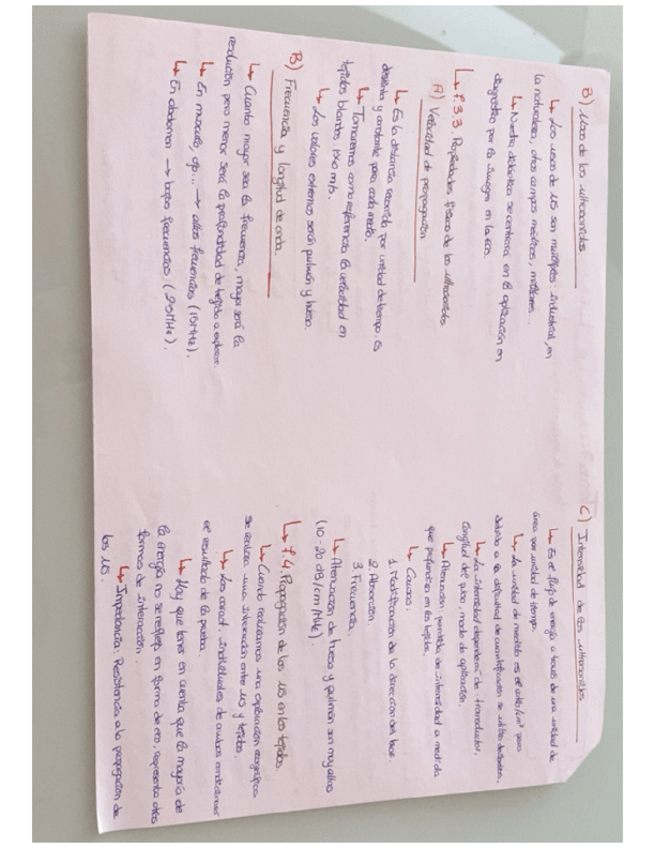 B) Usos de los ultrasonidos
↳ Los usos de US son multiples: industrial, en
la naturaleza, otros campos médicos, militares...
↳ Nuestra didáctica se centrará en la aplicación en
diagnóstico por la imagen en la eco.
↳ 1.3.3. Propiedades físicas de los ultrasonidos
A) Velocidad de propagación
↳ Es la distancia recorrida por unidad de tiempo. Es
distinta y constante para cada medio.
↳ Tomaremos como referencia la velocidad en
tejidos blandos: 1540 m/s.
↳ Los valores extremos serán pulmón y hueso.
B) Frecuencia y longitud de onda.
↳ Cuanto mayor sea la frecuencia, mayor será la
resolución pero menor será la profundidad de tejido a explorar.
↳ En músculo, ... → altas frecuencias (15MHz).
↳ En abdomen → bajas frecuencias ( MHz).
C) Intensidad de los ultrasonidos
↳ Es el flujo de energía a través de una unidad de
área por unidad de tiempo.
↳ La unidad de medida es el watio/cm² pero
debido a la dificultad de cuantificación se utiliza decibelios.
↳ La intensidad dependerá de: transductor,
longitud del pulso, modo de aplicación.
↳ Atenuación: pérdida de intensidad a medida
que profundiza en los tejidos.
↳ Causas:
1. Modificación de la dirección del haz.
2. Absorción.
3. Frecuencia.
↳ Atenuación de hueso y pulmón son muy altas
(10-20 dB/cm/MHz).
↳ 1.4. Propagación de los US en los tejidos.
↳ Cuando realizamos una exploración ecográfica
se realiza una interacción entre US y tejidos.
↳ Las caract. individuales de ambos
el resultado de la prueba.
↳ Hay que tener en cuenta que la mayoría de
la energía no se refleja en forma de eco, representa otras
formas de interacción.
↳ Impedancia: Resistencia a la propagación de
los US.